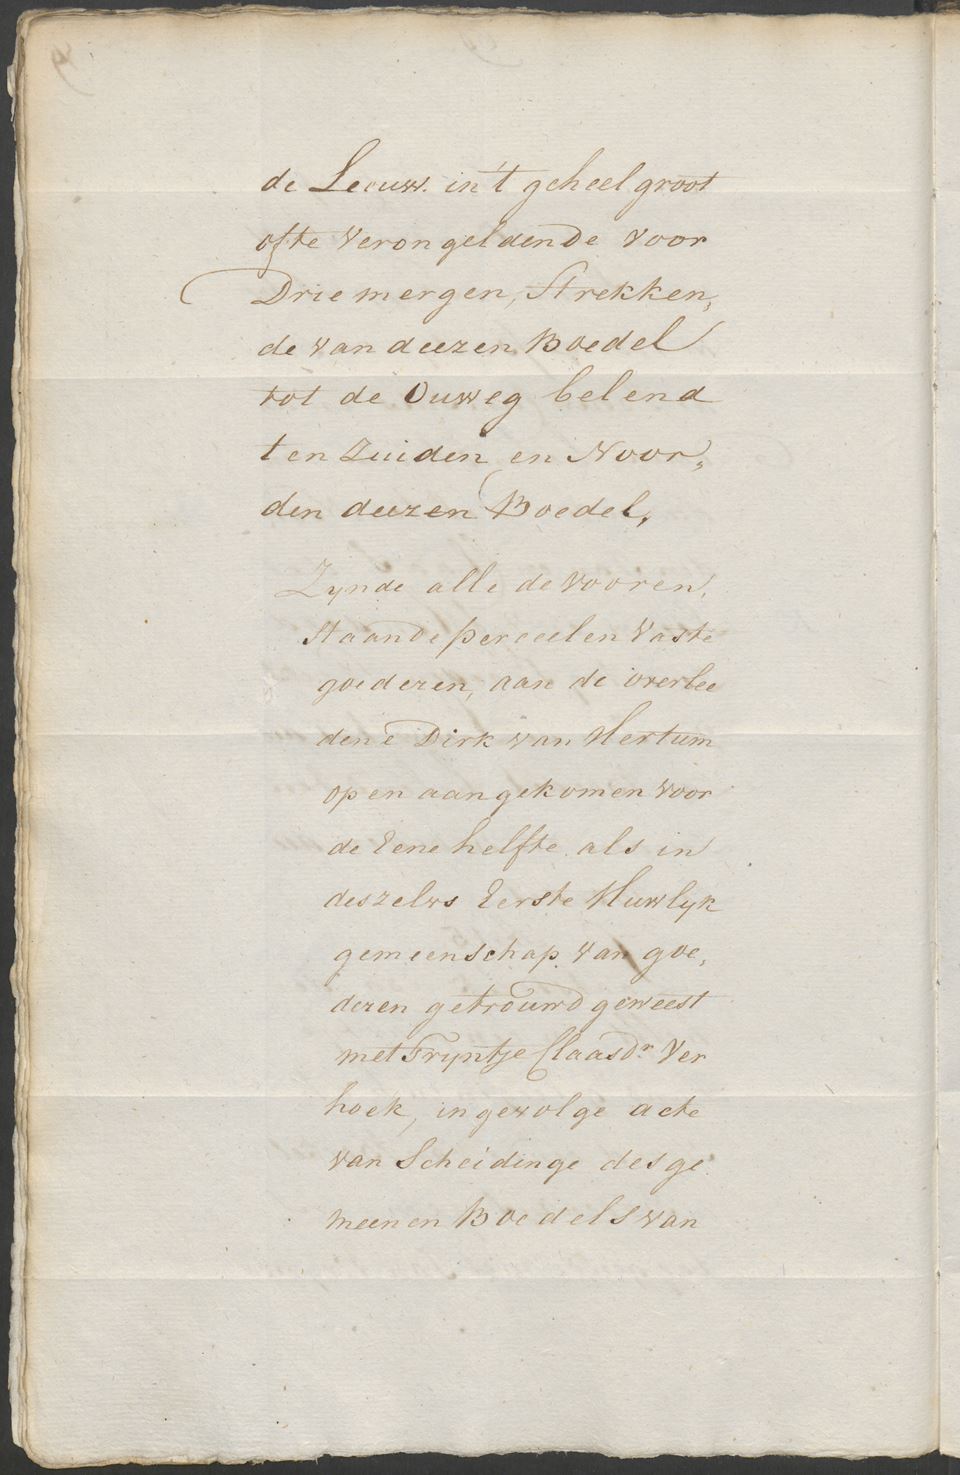 de Leeuw. in't geheel groot
ofte verongeldende voor
Drie mergen, Strekken,
de van deezen Boedel
tot de Ouweg belend
ten Zuiden en Noor,
den deezen Boedel,
Zynde alle de vooren,
staande perceelen vaste
goederen, aan de overlee
dene Dirk van Hertum
op en aangekomen voor
de Eene helfte als in
deszelvs Eerste Huwlyk
gemeenschap van goe,
deren getrouwd geweest
met Tryntje Claasdr. Ver
hoek, ingevolge acte
van Scheidinge des ge
meenen Boedels van